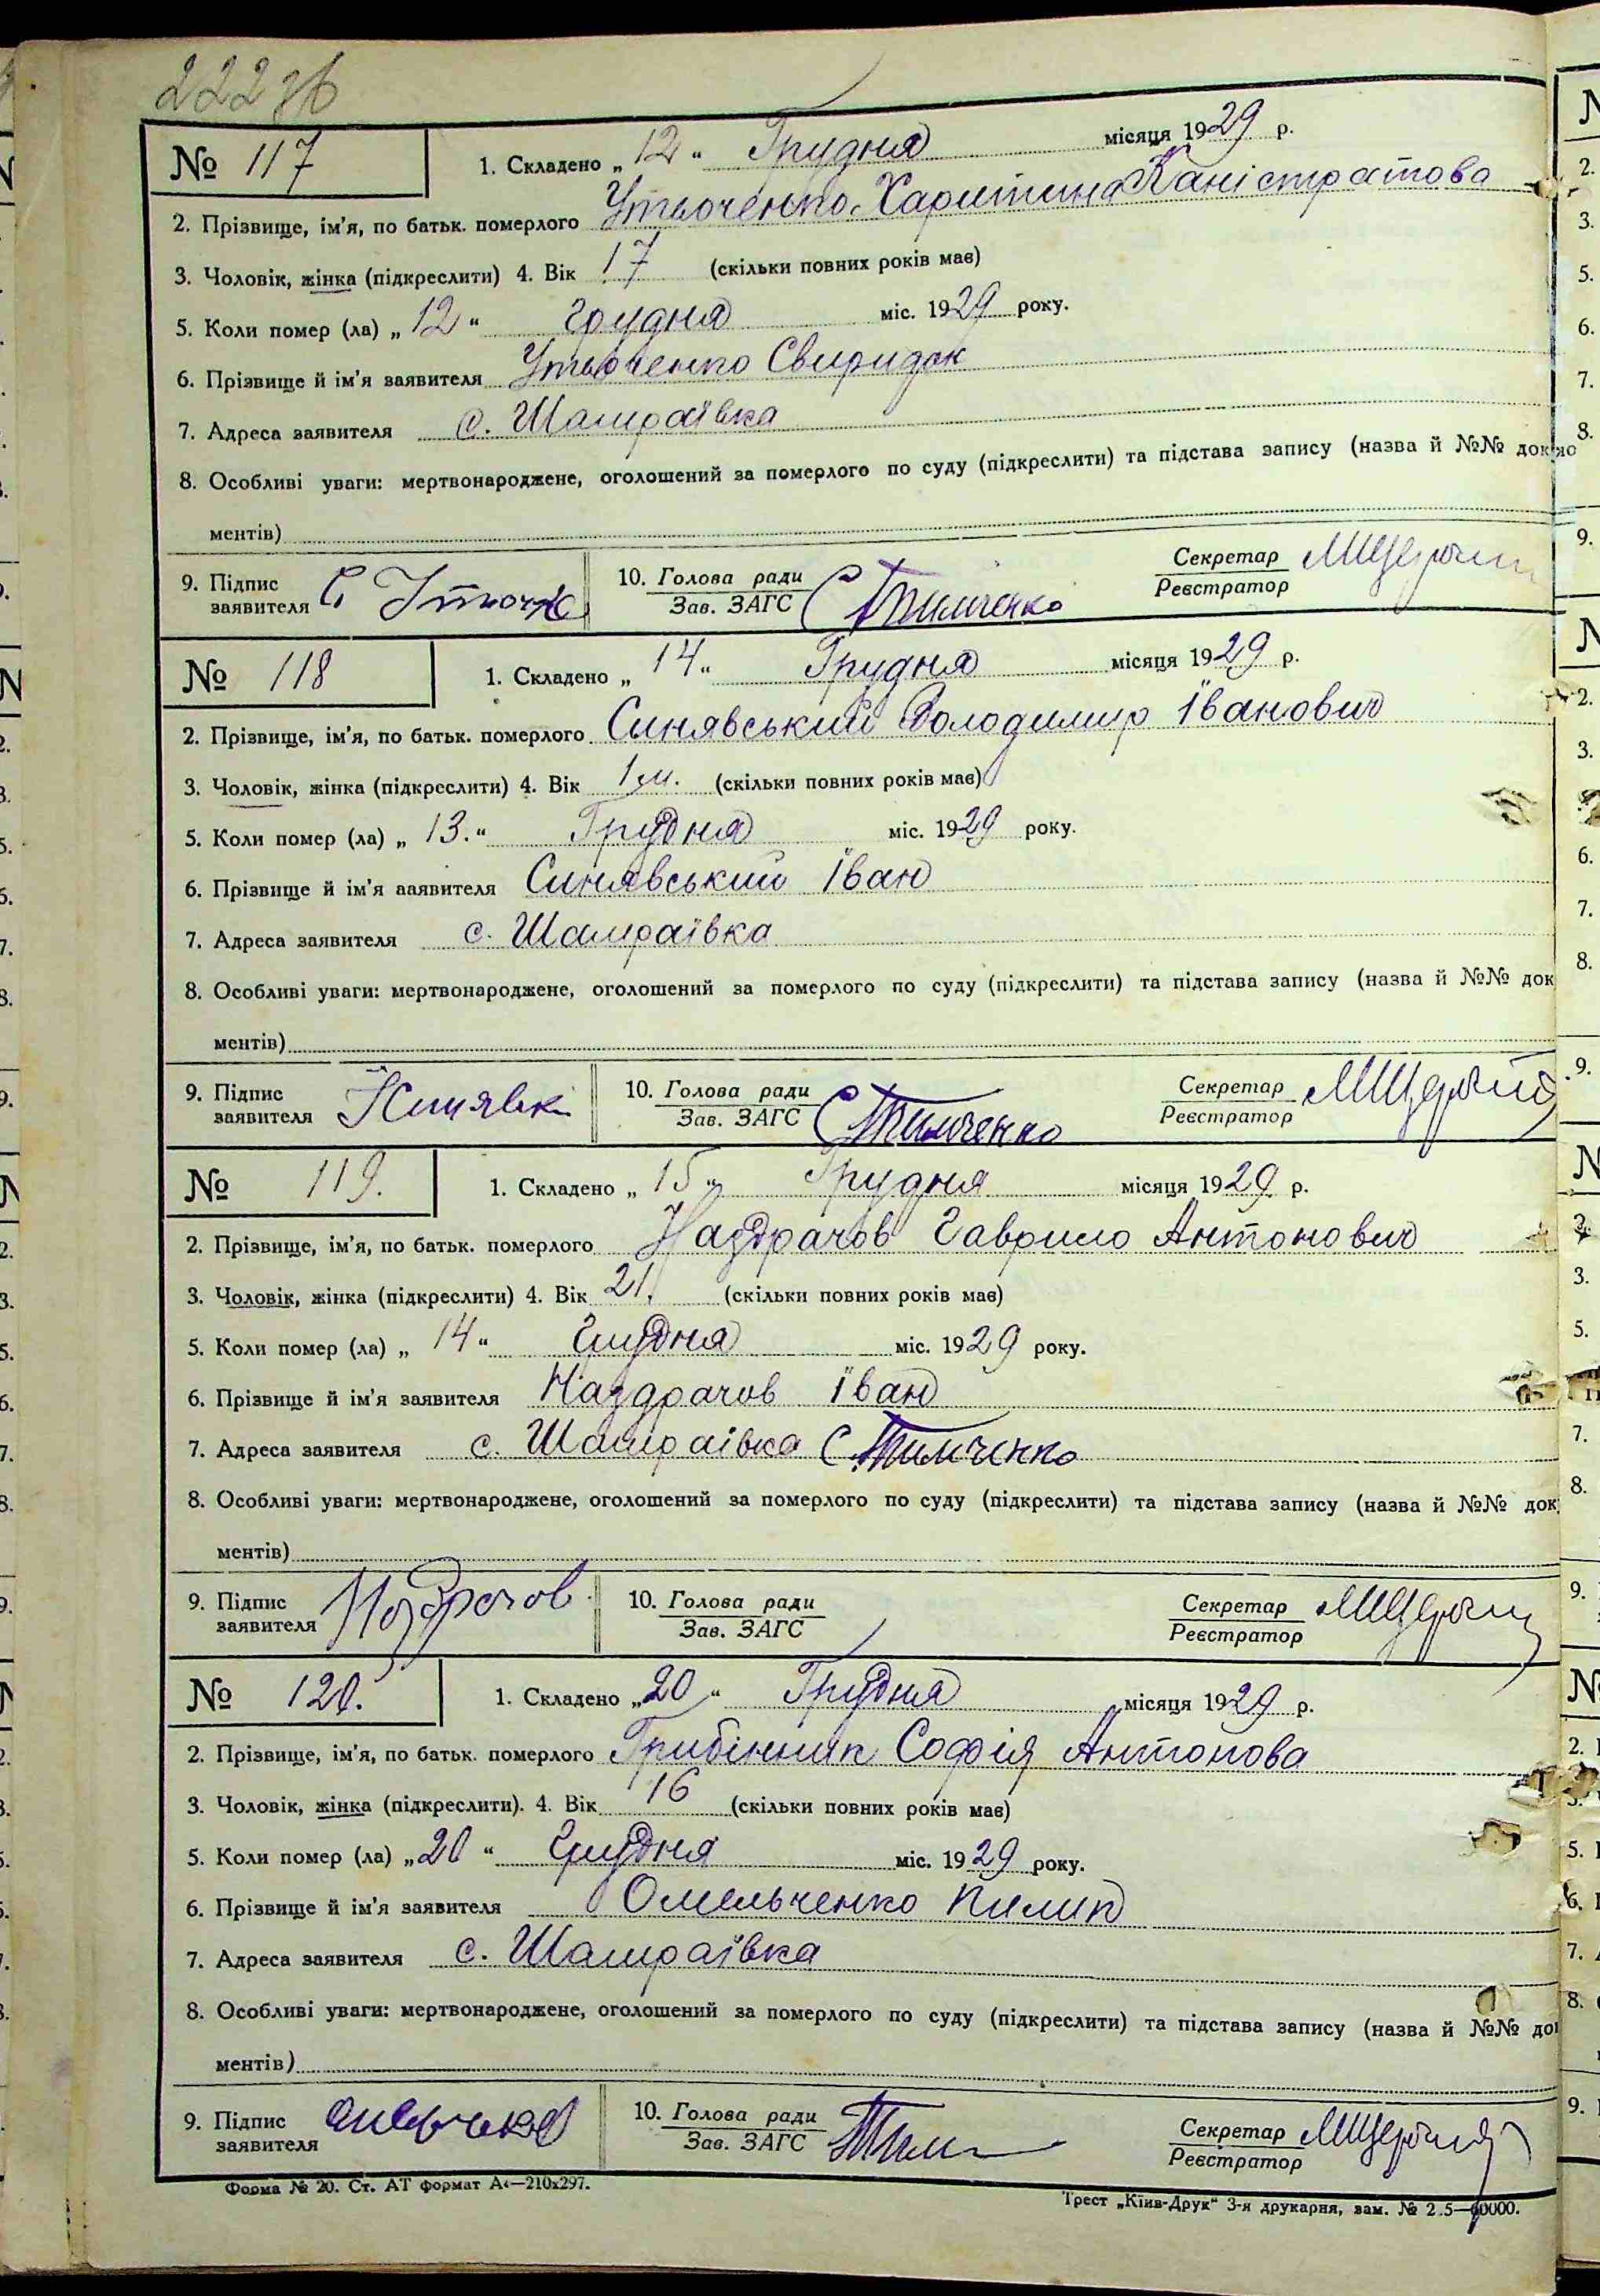 222 зв
№ 117
1. Складено „ 12 “ Грудня місяця 1929 р.
2. Прізвище, ім'я, по батьк. померлого Утьоченко Харитина Каністратова
3. Чоловік, жінка (підкреслити) 4. Вік 17 (скільки повних років має)
5. Коли помер (ла) „ 12 “ Грудня міс. 1929 року.
6. Прізвище й ім'я заявителя Утьоченко Свиридон
7. Адреса заявителя с. Шамраївка
8. Особливі уваги: мертвонароджене, оголошений за померлого по суду (підкреслити) та підстава запису (назва й №№ док
ментів)
9. Підпис заявителя С
10. Голова ради Зав. ЗАГС С Тимченко
Секретар Реєстратор
№ 118
1. Складено „ 14 “ Грудня місяця 1929 р.
2. Прізвище, ім'я, по батьк. померлого Синявський Володимир Іванович
3. Чоловік, жінка (підкреслити) 4. Вік 1 м. (скільки повних років має)
5. Коли помер (ла) „ 13. “ Грудня міс. 1929 року.
6. Прізвище й ім'я заявителя Синявський Іван
7. Адреса заявителя с. Шамраївка
8. Особливі уваги: мертвонароджене, оголошений за померлого по суду (підкреслити) та підстава запису (назва й №№ док
ментів)
9. Підпис заявителя
10. Голова ради Зав. ЗАГС С Тимченко
Секретар Реєстратор
№ 119.
1. Складено „ 15 “ Грудня місяця 1929 р.
2. Прізвище, ім'я, по батьк. померлого Наздрачов Гаврило Антонович
3. Чоловік, жінка (підкреслити) 4. Вік 21. (скільки повних років має)
5. Коли помер (ла) „ 14 “ Грудня міс. 1929 року.
6. Прізвище й ім'я заявителя Наздрачов Іван
7. Адреса заявителя с. Шамраївка С Тимченко
8. Особливі уваги: мертвонароджене, оголошений за померлого по суду (підкреслити) та підстава запису (назва й №№ док
ментів)
9. Підпис заявителяНоздрочов
10. Голова ради Зав. ЗАГС
Секретар Реєстратор
№ 120.
1. Складено „ 20 “ Грудня місяця 1929 р.
2. Прізвище, ім'я, по батьк. померлого Грибінник Софія Антонова
3. Чоловік, жінка (підкреслити). 4. Вік 16 (скільки повних років має)
5. Коли помер (ла) „ 20 “ Грудня міс. 1929 року.
6. Прізвище й ім'я заявителя Омельченко Пилип
7. Адреса заявителя с. Шамраївка
8. Особливі уваги: мертвонароджене, оголошений за померлого по суду (підкреслити) та підстава запису (назва й №№ док
ментів)
9. Підпис заявителя
10. Голова ради Зав. ЗАГС Тим
Секретар Реєстратор
Форма № 20. Ст. АТ формат А4—210х297.
Трест „Київ-Друк“ 3-я друкарня, зам. № 2.5—60000.